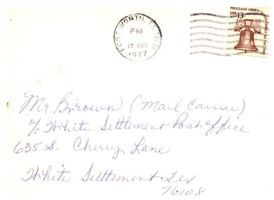 FORT WORTH, TX
PM
10 AUG
1977
PROCLAIM LIBERTY
USA 13c
Mr. Brown (Mail Carrier)
c/o White Settlement Post Office
635 S. Cherry Lane
White Settlement Tex
76108